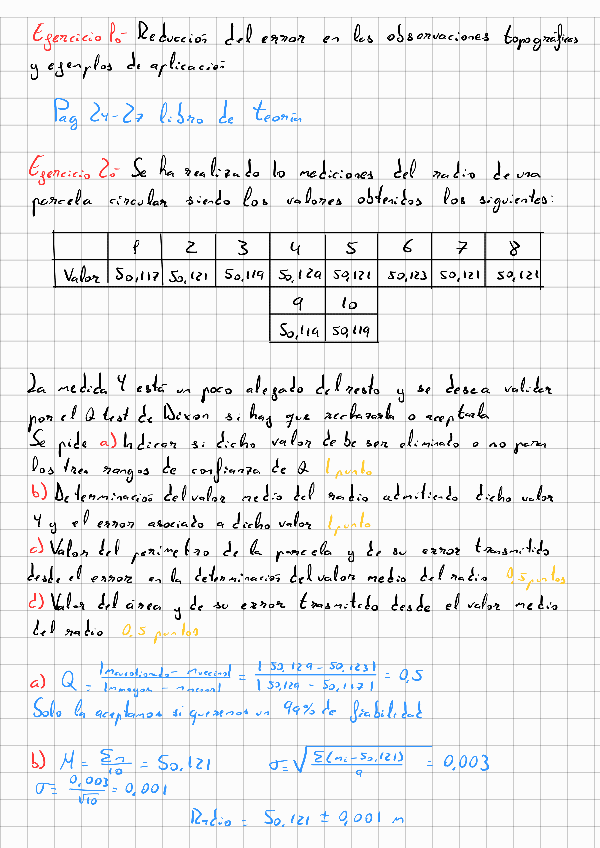 Ejercicio 1º- Reducción del error en las observaciones topográficas
y ejemplos de aplicación
Pag 24-27 libro de teoría
Ejercicio 2º- Se ha realizado 10 mediciones del radio de una
parcela circular siendo los valores obtenidos los siguientes:
1 2 3 4 5 6 7 8
Valor 50,117 50,121 50,119 50,129 50,121 50,123 50,121 50,121
9 10
50,119 50,119
La medida 4 está un poco alejado del resto y se desea validar
por el Q test de Dixon si hay que rechazarla o aceptarla
Se pide a) Indicar si dicho valor debe ser eliminado o no para
los tres rangos de confianza de Q 1 punto
b) Determinación del valor medio del radio admitiendo dicho valor
4 y el error asociado a dicho valor 1 punto
c) Valor del perímetro de la parcela y de su error trasmitido
desde el error en la determinación del valor medio del radio 0,5 puntos
d) Valor del área y de su error trasmitido desde el valor medio
del radio 0,5 puntos
a) Q = |mcuestionado - mvecino| / |mmayor - mmenor| = |50,129 - 50,123| / |50,129 - 50,117| = 0,5
Solo la aceptamos si queremos un 99% de fiabilidad
b) M = Σm/10 = 50,121 σ = √Σ(mi-50,121)/9 = 0,003
σ = 0,003/√10 = 0,001
Radio = 50,121 ± 0,001 m